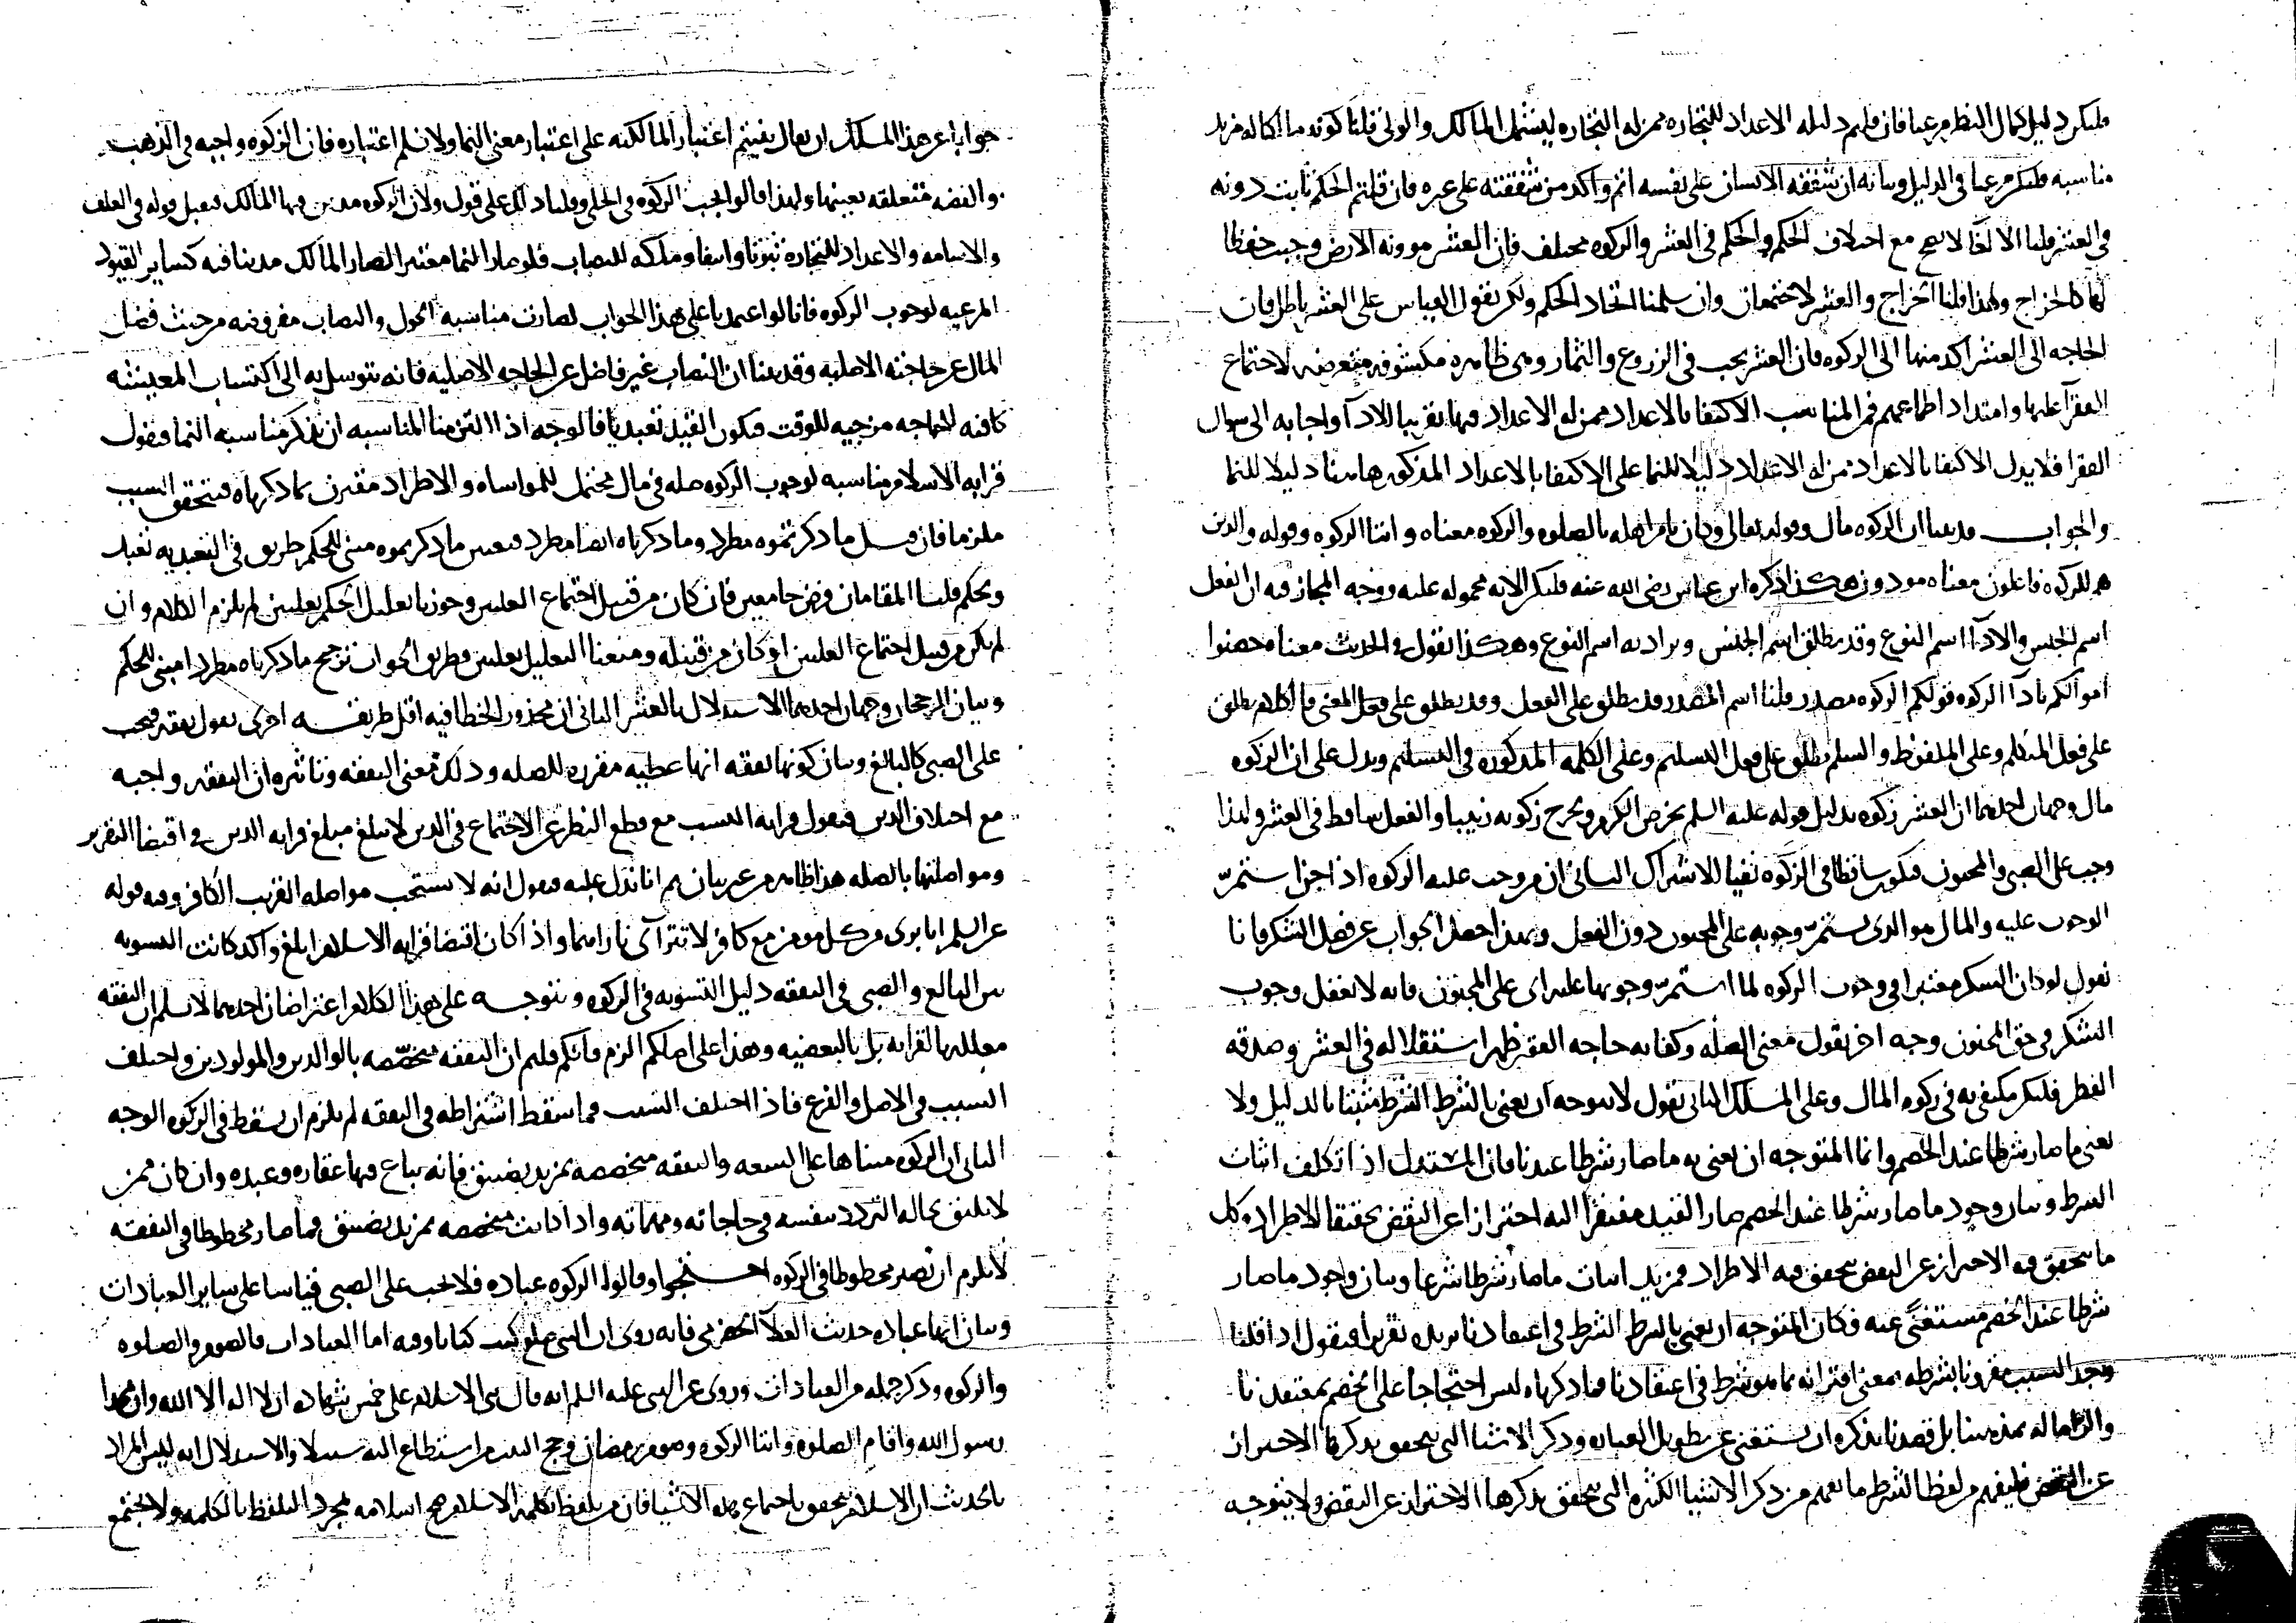 فليكن دليل كمال النظر مرعيا فان قلتم دليله الاعداد للتجاره بمنزله التجاره ليشمل المالك والولي قلنا كونه مالكا له مزيد
مناسبه فليكن مرعيا في الدليل وبيانه ان شفقه الانسان على نفسه اتم واكد من شفقته على غيره فان قلتم الحكم ثابت دونه
في العشر قلنا الالحاق لا يصح مع اختلاف الحكم والحكم في العشر والزكوه مختلف فان العشر موونه الارض وجبت حفظا
لها كالخراج ولهذا قلنا الخراج والعشر لا يجتمعان وان سلمنا اتحاد الحكم ولكن نقول القياس على العشر باطل فان
الحاجه الى العشر اكد منها الى الزكوه فان العشر يجب في الزروع والثمار وهي ظاهره مكشوفه متعرضه لاجتماع
الفقرآ عليها وامتداد اطماعهم فمن المناسب الاكتفا بالاعداد بمنزله الاعداد فيها تقريبا للادآ واجابه الى سوال
الفقرا فلا يدل الاكتفا بالاعداد بمنزله الاعداد دليلا للنما على الاكتفا بالاعداد المذكور هاهنا دليلا للنما
والجواب قد بينا ان الزكوه مال وقوله تعالى وكان يامر اهله بالصلوه والزكوه معناه وايتا الزكوه وقوله والذين
هم للزكوه فاعلون معناه مودون هكذا ذكره ابن عباس رضي الله عنه فليكن الايه محموله عليه ووجه المجاز فيه ان الفعل
اسم الجنس والادآ اسم النوع وقد يطلق اسم الجنس ويراد به اسم النوع وهكذا نقول في الحديث معناه حصنوا
اموالكم بادآ الزكوه قولكم الزكوه مصدر قلنا اسم المصدر قد يطلق على الفعل وقد يطلق على محل المعنى فالكلام يطلق
على قول المتكلم وعلى الملفوظ والسلم يطلق على فعل التسليم وعلى الكلمه المذكوره في التسليم ويدل على ان الزكوه
مال وجهان احدهما ان العشر زكوه بدليل قوله عليه السلم يخرص الكرم ويخرج زكوته زبيبا والفعل ساقط في العشر ولهذا
وجب على الصبي والمجنون فيكون ساقطا في الزكوه نفيا للاشتراك الثاني ان من وجبت عليه الزكوه اذا جن استمر
الوجوب عليه والمال هو الذي يستمر وجوبه على المجنون دون الفعل وبهذا حصل الجواب عن فصل الشكر فانا
نقول لو كان الشكر معتبرا في وجوب الزكوه لما استمر وجوبها عليه اي على المجنون فانه لا يعقل وجوب
الشكر في حق المجنون وجه اخر نقول معنى الصله وكفايه حاجه الفقير ظهر استقلاله في العشر وصدقه
الفطر فليكن مكتفى به في زكوه المال وعلى المسلك الثاني نقول لا يتوجه ان يعنى بالشرط الشرط مثبتا بالدليل ولا
يعنى ما صار شرطا عند الخصم وانما المتوجه ان يعنى به ما صار شرطا عندنا فان المستدل اذا تكلف اثبات
الشرط وبيان وجود ما صار شرطا عند الخصم صار القيد مفتقرا اليه احترازا عن النقض تحقيقا للاطراد وكل
ما يتحقق فيه الاحتراز عن النقض يتحقق فيه الاطراد فمزيد اثبات ما صار شرطا شرعا وبيان وجود ما صار
شرطا عند الخصم مستغنى عنه فكان المتوجه ان يعنى بالشرط الشرط في اعتقادنا نزيده تقريرا فنقول اذا قلنا
وجد السبب مقرونا بشرطه بمعنى اقترانه بما هو شرط في اعتقادنا فما ذكرناه ليس احتجاجا على الخصم بمعتقدنا
والزاما له بمذهبنا بل قصدنا بذكره ان يستغنى عن تطويل العباره وذكر الاشيا التي يتحقق بذكرها الاحتراز
عن النقض فليفهم من لفظ الشرط ما يفهم من ذكر الاشيا الكثيره التي يتحقق بذكرها الاحتراز عن النقض ولا يتوجه
جوابا عن هذا المسلك ان يقال بنيتم اعتبار المالكيه على اعتبار معنى النما ولا نسلم اعتباره فان الزكوه واجبه في الذهب
والفضه متعلقه بعينها ولهذا قالوا تجب الزكوه في الحلي وقلنا ذلك على قول ولان الزكوه مدين فيها المالك فيقبل قوله في العلف
والاسامه والاعداد للتجاره ثبوتا وانتفا وملكه للنصاب فلو صار النما معتبرا لصار المالك مدينا فيه كساير القيود
المرعيه لوجوب الزكوه فان قالوا اعتمدنا على هذا الجواب لصارت مناسبه الحول والنصاب مفروضه من حيث فضل
المال عن حاجته الاصليه وقد بينا ان النصاب غير فاضل عن الحاجه الاصليه فانه يتوسل به الى اكتساب المعيشه
كافيه لحاجه مزجيه للوقت فيكون القيد تعبديا فالوجه اذا التزمنا المناسبه ان نذكر مناسبه النما فنقول
قرابه الاسلام مناسبه لوجوب الزكوه صله في مال محتمل للمواساه والاطراد مقترن بما ذكرناه فتحقق السبب
ملزما فان قيل ما ذكرتموه مطرد وما ذكرناه ايضا مطرد فتعيين ما ذكرتموه مبنى للحكم طريق في التعديه تقيد
وتحكم قلنا المقامان فرض جامعين فان كان من قبيل اجتماع العلتين وجوزنا تعليل الحكم بعلتين لم يلزم الكلام وان
لم يكن من قبيل اجتماع العلتين او كان من قبيله ومنعنا التعليل بعلتين فطريق الجواب ترجيح ما ذكرناه مطردا مبنى للحكم
وبيان الرجحان وجهان احدهما الاستدلال بالعشر الثاني ان محذور الخطا فيه اقل طريقه اخرى نقول نفقه فتجب
على الصبي كالبالغ وبيان كونها نفقه انها عطيه مقرره للصله وذلك معنى النفقه وتاثيره ان النفقه واجبه
مع اختلاف الدين فنقول قرابه النسب مع قطع النظر عن الاجتماع في الدين لا تبلغ مبلغ قرابه الدين في اقتضا التقرير
ومواصلتها بالصله هذا ظاهر من غير بيان ثم انا ندل عليه فنقول انه لا يستحب مواصله القريب الكافر وفيه قوله
عليه السلم انا بري من كل مومن مع كافر لا تترآى ناراهما واذا كان اقتضا قرابه الاسلام ابلغ واكد كانت التسويه
بين البالغ والصبي في النفقه دليل التسويه في الزكوه ويتوجه على هذا الكلام اعتراضان احدهما لا نسلم ان النفقه
معلله بالقرابه بل بالبعضيه وهذا على اصلكم الزم فانكم قلتم ان النفقه مختصه بالوالدين والمولودين واختلف
السبب في الاصل والفرع فاذا اختلف السبب فما سقط اشتراطه في النفقه لم يلزم ان يسقط في الزكوه الوجه
الثاني ان الزكوه مبناها على السعه والنفقه مختصه بمزيد تضييق فانه يباع فيها عقاره وعبده وان كان ممن
لا يليق بحاله التردد بنفسه في حاجاته ومهماته واذا كانت مختصه بمزيد تضييق فما صار محطوطا في النفقه
لا يلزم ان يصير محطوطا في الزكوه احتجوا وقالوا الزكوه عباده فلا تجب على الصبي قياسا على ساير العبادات
وبيان انها عباده حديث العلآ الحضرمي فانه روى ان النبي صلعم كتب كتابا وفيه اما العبادات فالصوم والصلوه
والزكوه وذكر جمله من العبادات وروي عن النبي عليه السلم انه قال بني الاسلام على خمس شهاده ان لا اله الا الله وان محمدا
رسول الله واقام الصلوه وايتا الزكوه وصوم رمضان وحج البيت من استطاع اليه سبيلا والاستدلال انه ليس المراد
بالحديث ان الاسلام يتحقق باجتماع هذه الاشيا فان من تلفظ بكلمه الاسلام صح اسلامه بمجرد التلفظ بالكلمه ولا تجتمع